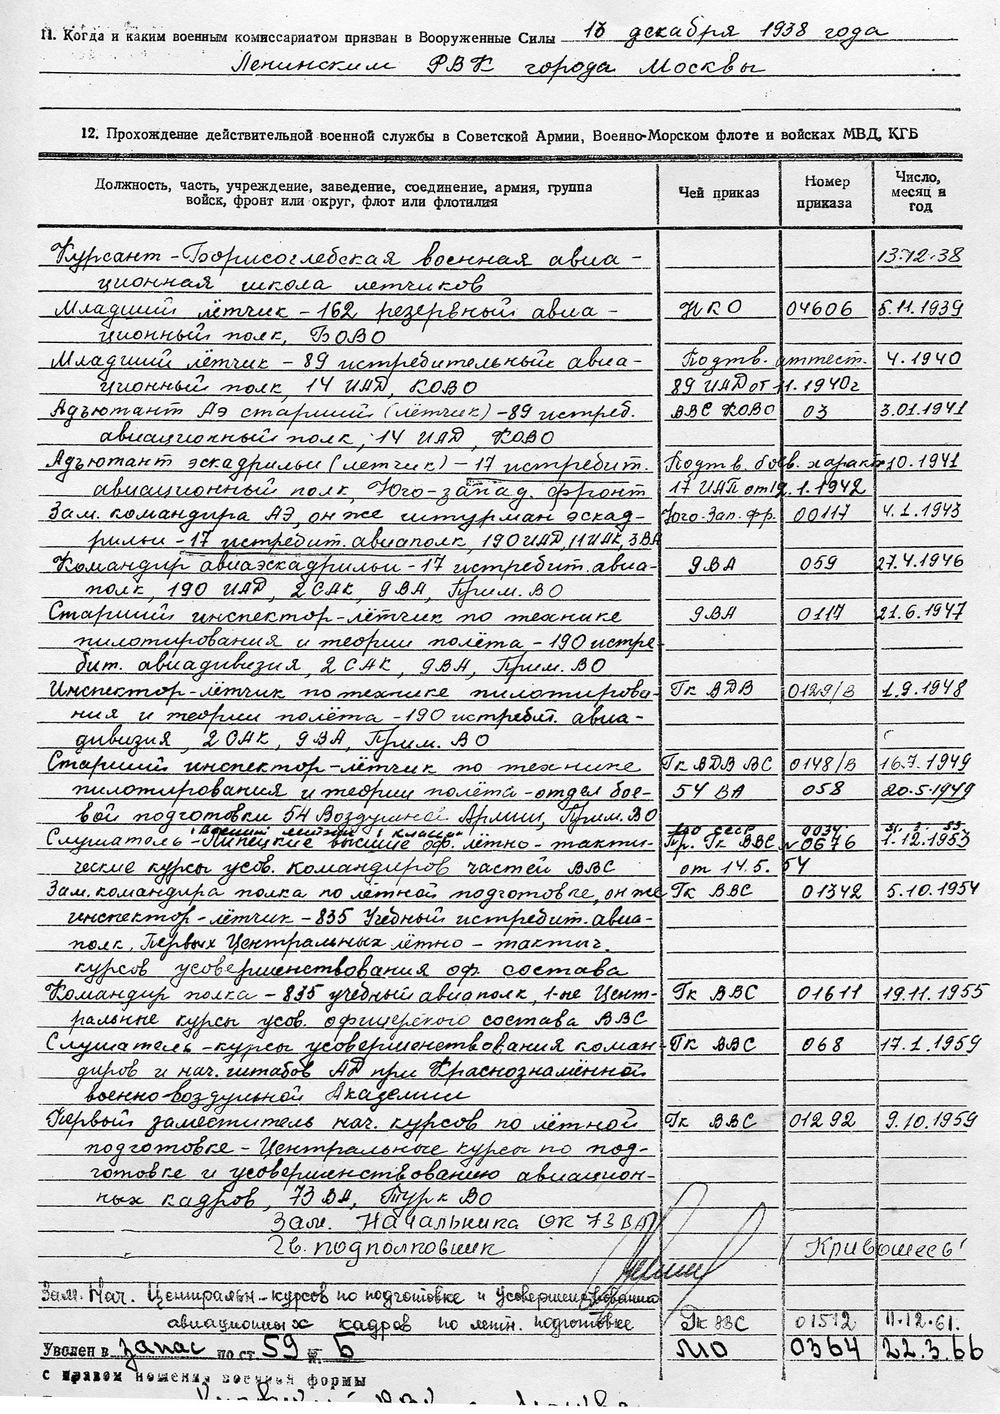 11. Когда и каким военным комиссариатом призван в Вооруженные Силы 13 декабря 1938 года
Ленинским РВК города Москвы
12. Прохождение действительной военной службы в Советской Армии, Военно-Морском флоте и войсках МВД, КГБ
Должность, часть, учреждение, заведение, соединение, армия, группа войск, фронт или округ, флот или флотилия Чей приказ Номер приказа Число, месяц и год
Курсант - Борисоглебская военная авиа- 13.12.38
ционная школа летчиков
Младший лётчик - 162 резервный авиа- НКО 04606 5.11.1939
ционный полк, БОВО
Младший лётчик - 89 истребительный авиа- Подтв. аттест. 4.1940
ционный полк, 14 ИАД, КОВО 89 ИАП от 11.1940г
Адъютант АЭ старший (лётчик) - 89 истреб. ВВС КОВО 03 3.01.1941
авиационный полк, 14 ИАД, КОВО
Адъютант эскадрильи (летчик) - 17 истребит. Подтв. боев. характ. 10.1941
авиационный полк, Юго-запад. фронт 17 ИАП от 1.1942
Зам. командира АЭ, он же штурман эскад- Юго-Зап. фр. 00117 4.1.1943
рильи - 17 истребит. авиаполк, 190 ИАД, 11 ИАК, 3 ВА
Командир авиаэскадрильи - 17 истребит. авиа- 9 ВА 059 27.4.1946
полк, 190 ИАД, 2 САК, 9 ВА, Прим. ВО
Старший инспектор-лётчик по технике 9 ВА 0117 21.6.1947
пилотирования и теории полёта - 190 истре-
бит. авиадивизия, 2 САК, 9 ВА, Прим. ВО
Инспектор-лётчик по технике пилотирова- Гк ВДВ 0129/В 1.9.1948
ния и теории полёта - 190 истребит. авиа-
дивизия, 2 САК, 9 ВА, Прим. ВО
Старший инспектор-лётчик по технике Гк ВДВ ВС 0148/В 16.7.1949
пилотирования и теории полёта - отдел бое- 54 ВА 058 20.5.1949
вой подготовки 54 Воздушной Армии, Прим. ВО
"Военный летчик 1 класса" 0034
Слушатель - Липецкие высшие оф. лётно - такти- Пр. Гк ВВС №0676 1.12.1953
ческие курсы усов. командиров частей ВВС от 14.5.54
Зам. командира полка по лётной подготовке, он же Гк ВВС 01342 5.10.1954
инспектор-лётчик - 835 Учебный истребит. авиа-
полк, Первых Центральных лётно - тактич.
курсов усовершенствования оф. состава
Командир полка - 835 учебный авиаполк, 1-ые Цент- Гк ВВС 01611 19.11.1955
ральные курсы усов. офицерского состава ВВС
Слушатель - курсы усовершенствования коман- Гк ВВС 068 17.1.1959
диров и нач. штабов АД при Краснознамённой
военно-воздушной Академии
Первый заместитель нач. курсов по лётной Гк ВВС 01292 9.10.1959
подготовке - Центральные курсы по под-
готовке и усовершенствованию авиацион-
ных кадров, 73 ВА, Турк ВО
Зам. Начальника ОК 73 ВА
Гв. подполковник /Кривошеев/
Зам. Нач. Центральн. курсов по подготовке и усовершенствованию
авиационных кадров по летн. подготовке Гк ВВС 01512 11.12.61.
Уволен в запас по ст. 59 п. Б МО 0364 22.3.66
с правом ношения военной формы